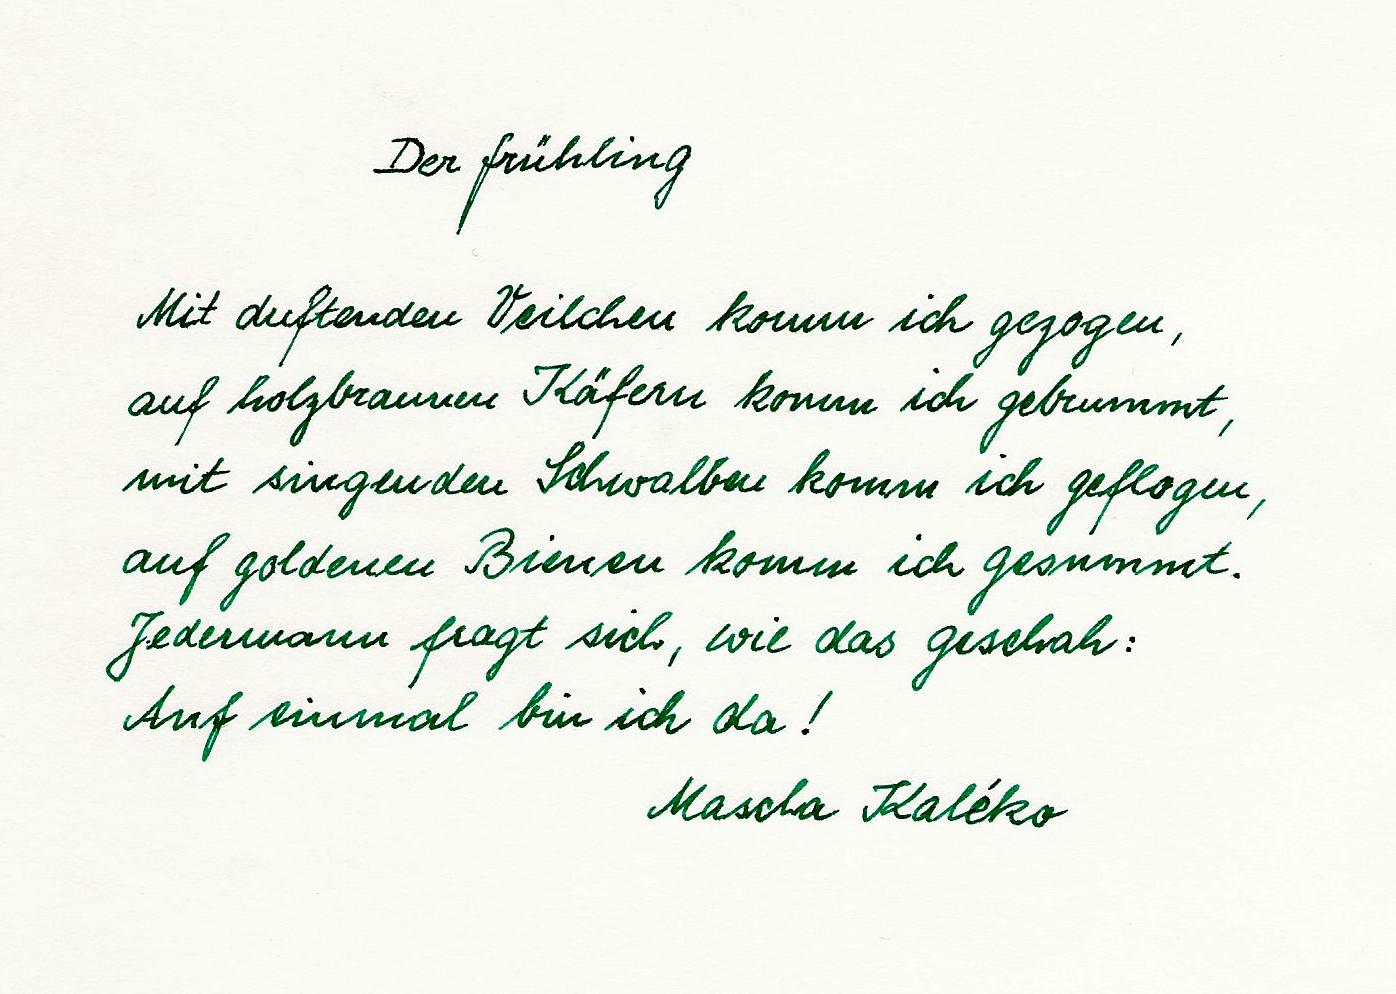 Der Frühling
Mit duftenden Veilchen komm ich gezogen,
auf holzbraunen Käfern komm ich gebrummt,
mit singenden Schwalben komm ich geflogen,
auf goldenen Bienen komm ich gesummt.
Jedermann fragt sich, wie das geschah:
Auf einmal bin ich da!
Mascha Kaléko